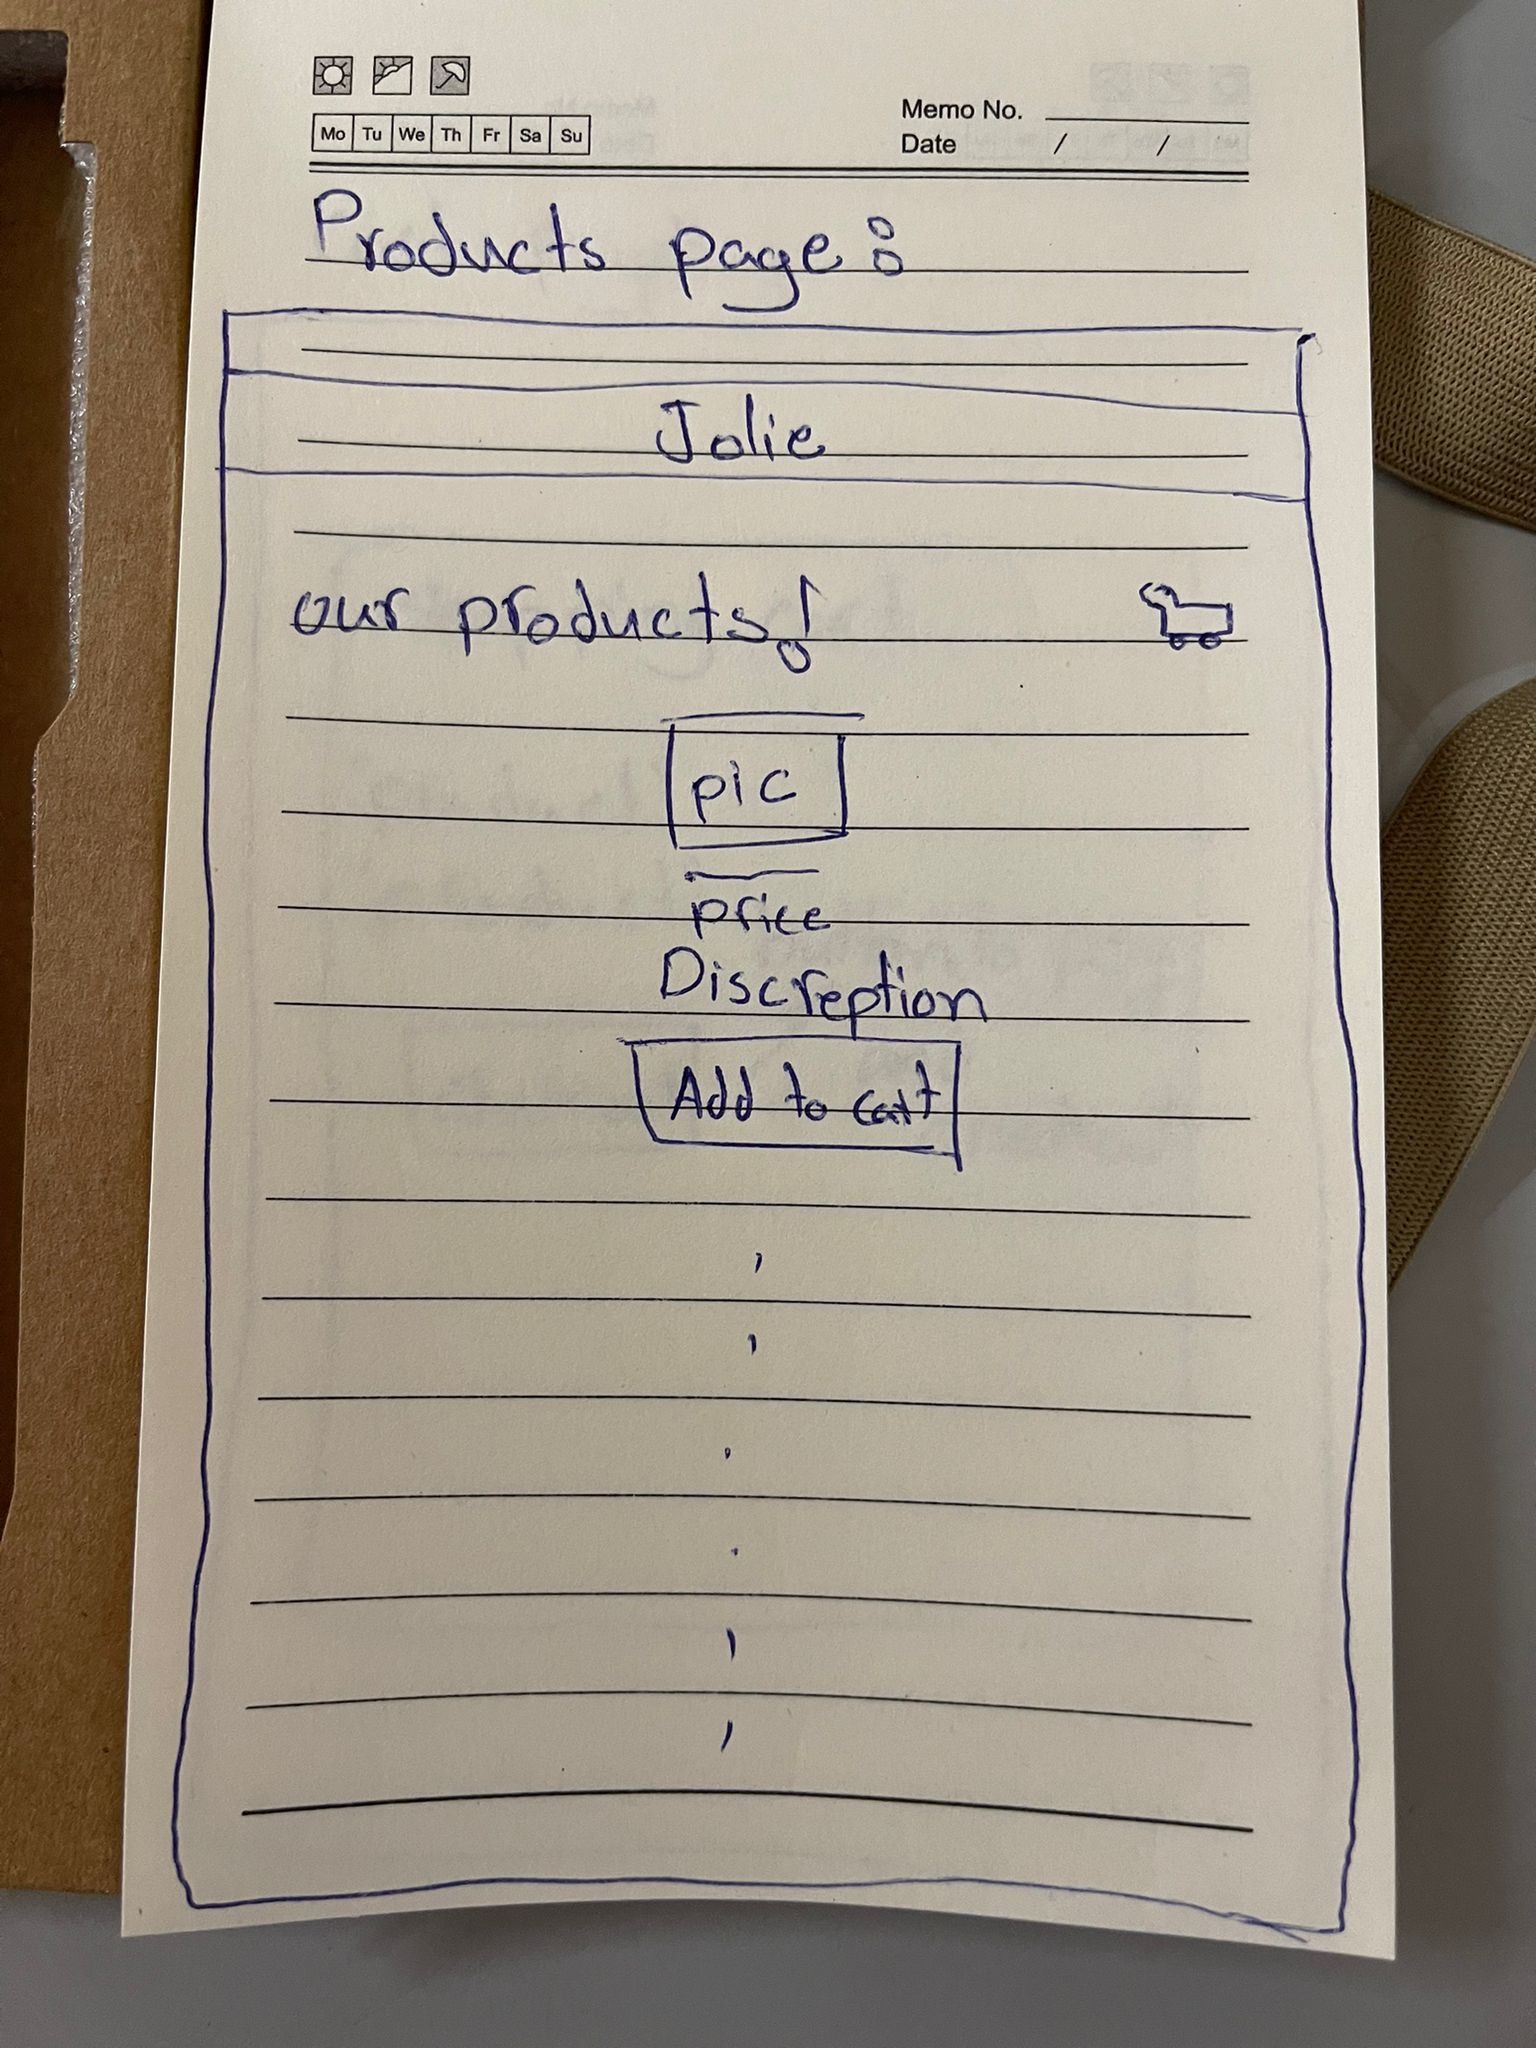 Mo Tu We Th Fr Sa Su
Memo No.
Date / /
Products page:
Jolie
our products!
pic
price
Discreption
Add to cart